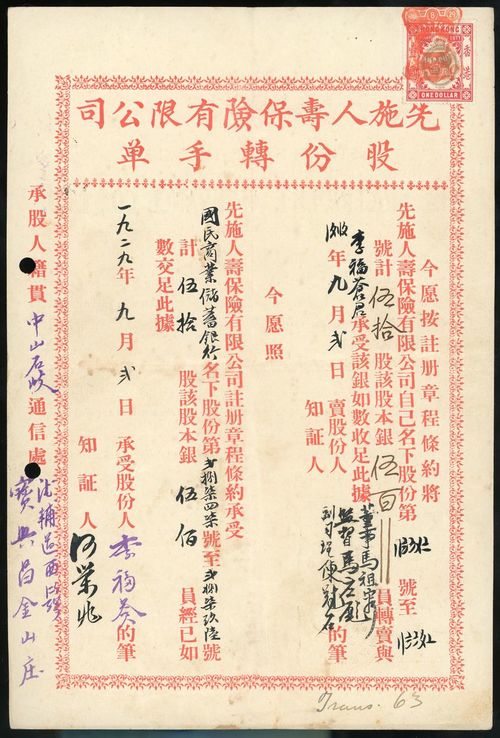 HONG KONG
香港
ONE DOLLAR
先施人壽保險有限公司
股份轉手单
今愿按註册章程條約將
先施人壽保險有限公司自己名下股份第 號至
號計 伍拾 股該股本銀 伍百 員轉賣與
李福 君承受該銀如數收足此據
年 九 月 弍 日 賣股份人 董事馬祖 監督馬 副司理陳 的筆
知証人
今愿照
先施人壽保險有限公司註册章程條約承受
國民商業儲蓄銀行名下股份第弍捌柒四柒號至弍捌柒玖陸號
計 伍拾 股該股本銀 伍佰 員經已如
數交足此據
一九二九年 九 月 弍 日 承受股份人 李福 的筆
知証人 何榮兆
承股人籍貫 中山石岐 通信處 寶興昌金山庄
Trans. 63